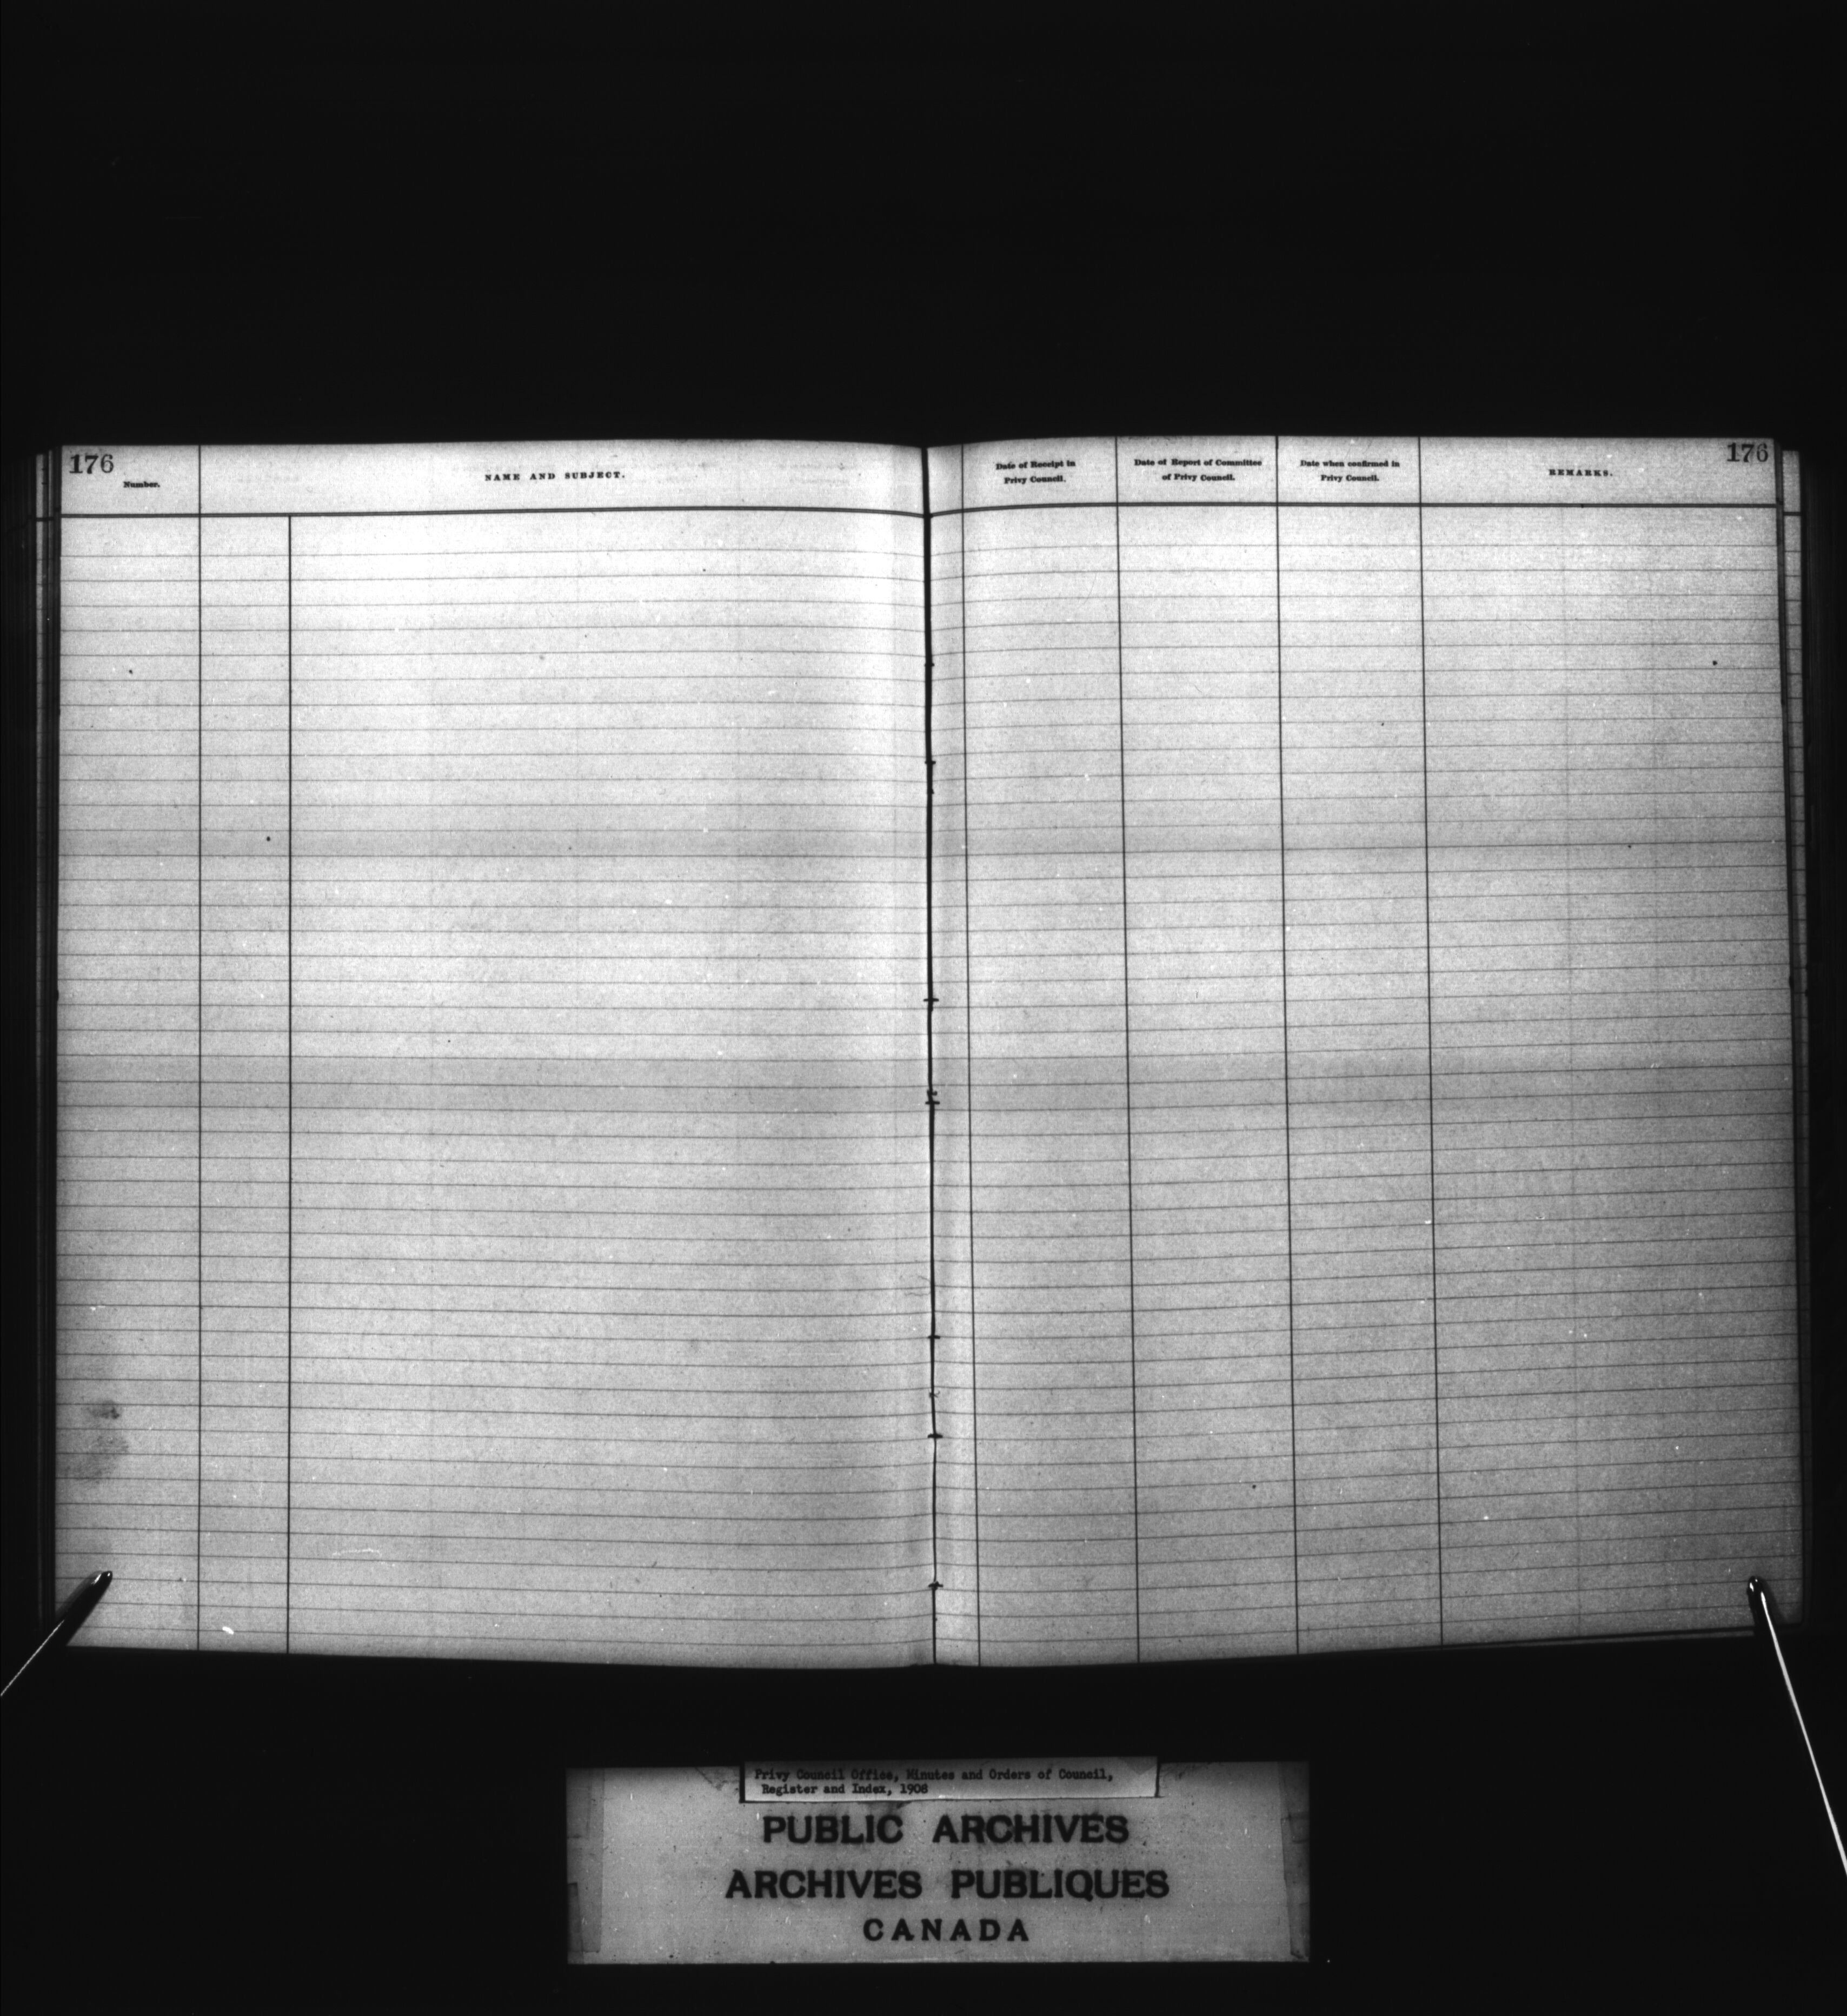 176
Number.
NAME AND SUBJECT.
Date of Receipt in
Privy Council.
Date of Report of Committee
of Privy Council.
Date when confirmed in
Privy Council.
REMARKS.
176
Privy Council Office, Minutes and Orders of Council,
Register and Index, 1908
PUBLIC ARCHIVES
ARCHIVES PUBLIQUES
CANADA